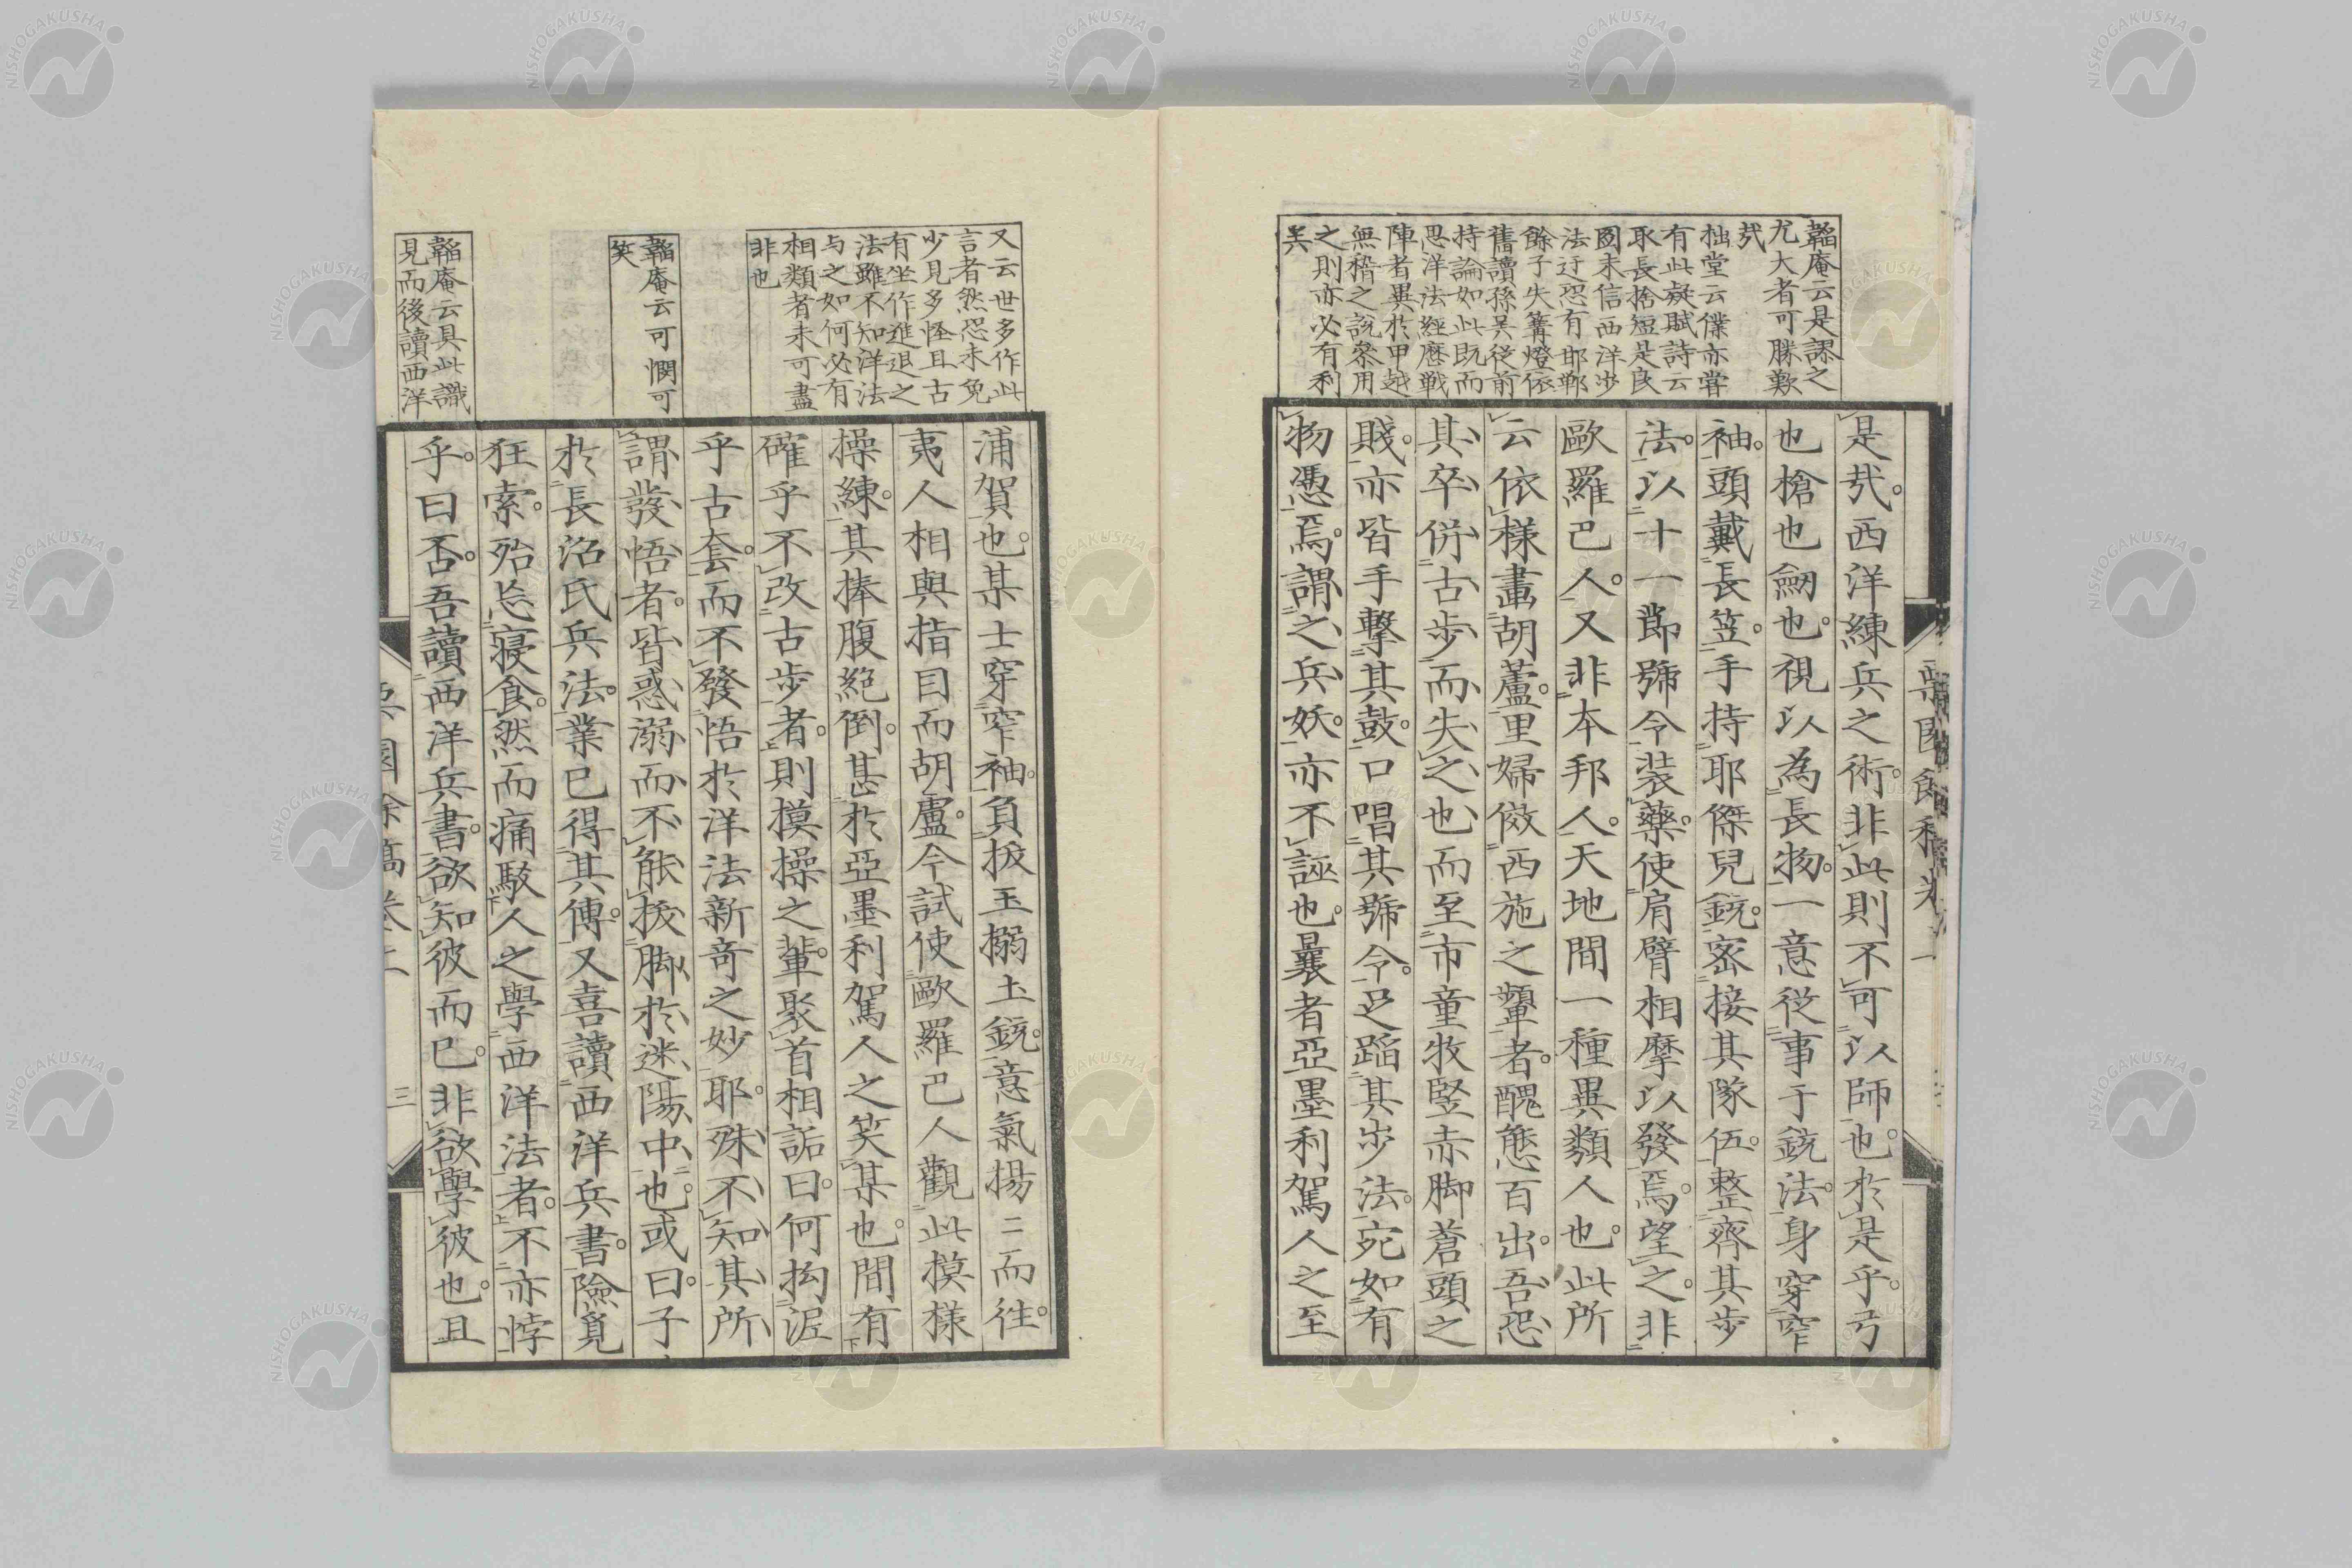 韜庵云是謬之
尤大者可勝歎
㢤
拙堂云僕亦嘗
有此疑賦詩云
取長捨短是良
圖未信西洋步
法迂恐有邯鄲
餘子失篝燈依
舊讀孫吴從前
持論如此既而
思洋法經歷戰
陣者異於甲越
無稽之說參用
之則亦必有利
矣
是㢤。西洋練兵之術。非此則不可以師也。於是乎。弓
也槍也劒也。視以為長物。一意從事于銃法。身穿窄
袖。頭戴長笠。手持耶傑兒銃。密接其隊伍。整齊其步
法。以十一節號令裝藥。使肩臂相摩以發焉。望之。非
歐羅巴人。又非本邦人。天地間一種異類人也。此所
云依樣畫胡蘆。里婦傚西施之顰者。醜態百出。吾恐
其卒併古步而失之也而至市童牧豎赤脚蒼頭之
賤。亦皆手擊其鼓。口唱其號令。足蹈其步法。宛如有
物憑焉。謂之兵妖。亦不誣也。曩者亞墨利駕人之至
又云世多作此
言者然恐未免
少見多怪且古
有坐作進退之
法雖不知洋法
与之如何必有
相類者未可盡
非也
韜庵云可憫可
笑
韜庵云具此識
見而後讀西洋
浦賀也。某士穿窄袖。負拔玉搦土銃。意氣揚〻而徃。
夷人相與指目而胡盧。今試使歐羅巴人觀此摸樣
操練。其捧腹絕倒。甚於亞墨利駕人之笑某也。間有
確乎不改古步者。則摸操之輩。聚首相詬曰。何拘泥
乎古套。而不發悟於洋法新奇之妙耶。殊不知其所
謂發悟者。皆惑溺而不能拔脚於迷陽中也。或曰。子
於長沼氏兵法。業已得其傳。又喜讀西洋兵書。險覓
狂索。殆忘寢食。然而痛駁人之學西洋法者。不亦悖
乎。曰否。吾讀西洋兵書。欲知彼而已。非欲學彼也。且
三